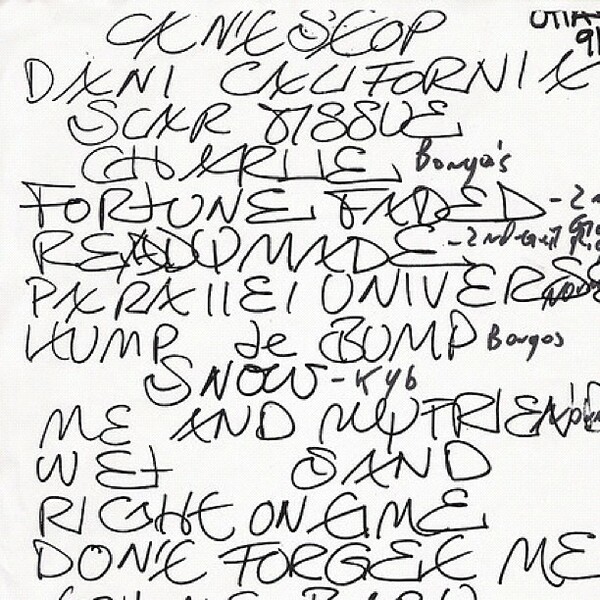 CAN'T STOP
DANI CALIFORNIA
SCAR TISSUE
CHARLIE Bongo's
FORTUNE FADED - 2
READYMADE - 2nd
PARALLEL UNIVERSE
HUMP de BUMP Bongos
SNOW - Kyb
ME AND MY FRIENDS
WEt SAND
RIGHT ON TIME
DON'T FORGET ME